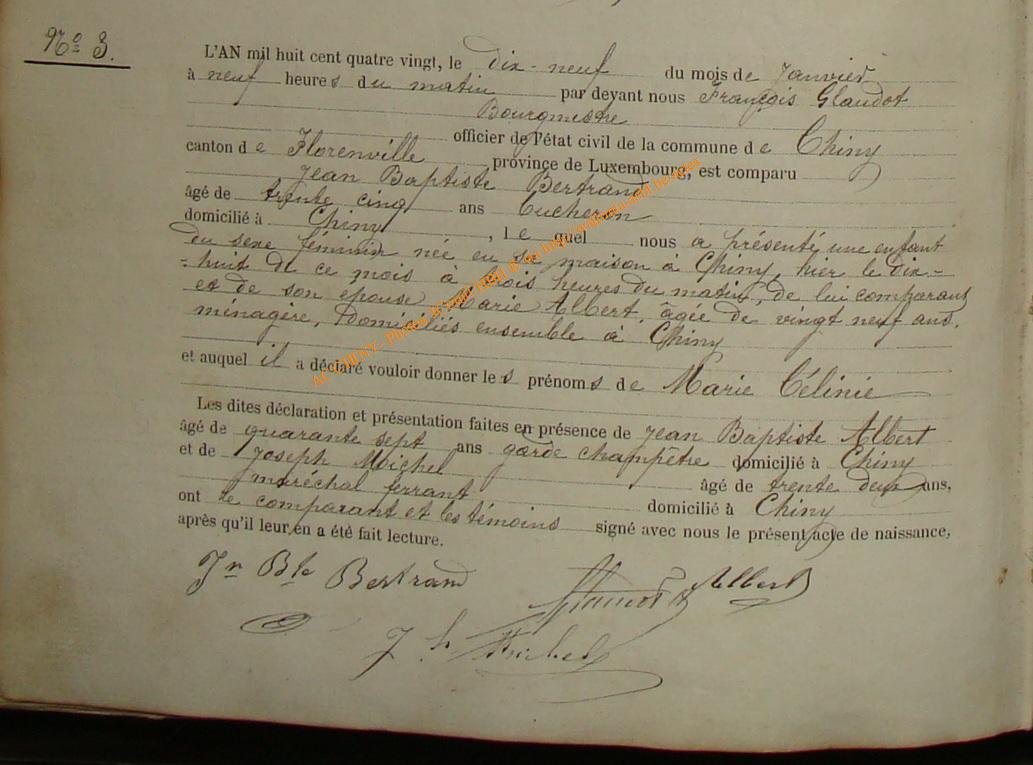 No 3.
L'AN mil huit cent quatre vingt, le dix-neuf du mois de Janvier
à neuf heures du matin par devant nous François Glaudot
Bourgmestre
officier de l'état civil de la commune de Chiny
canton de Florenville province de Luxembourg, est comparu
Jean Baptiste Bertrand
âgé de trente cinq ans bucheron
domicilié à Chiny, lequel nous a présenté une enfant
du sexe féminin née en sa maison à Chiny, hier le dix-
-huit de ce mois à trois heures du matin, de lui comparant
et de son epouse Marie Albert, âgée de vingt neuf ans,
ménagère, domiciliés ensemble à Chiny
et auquel il a déclaré vouloir donner les prénoms de Marie Célinie
Les dites déclaration et présentation faites en présence de Jean Baptiste Albert
âgé de quarante sept ans garde champêtre domicilié à Chiny
et de Joseph Michel
maréchal ferrant âgé de trente deux ans,
domicilié à Chiny
ont le comparant et les témoins signé avec nous le présent acte de naissance,
après qu'il leur en a été fait lecture.
Jn Bte Bertrand
Albert
Jh Michel